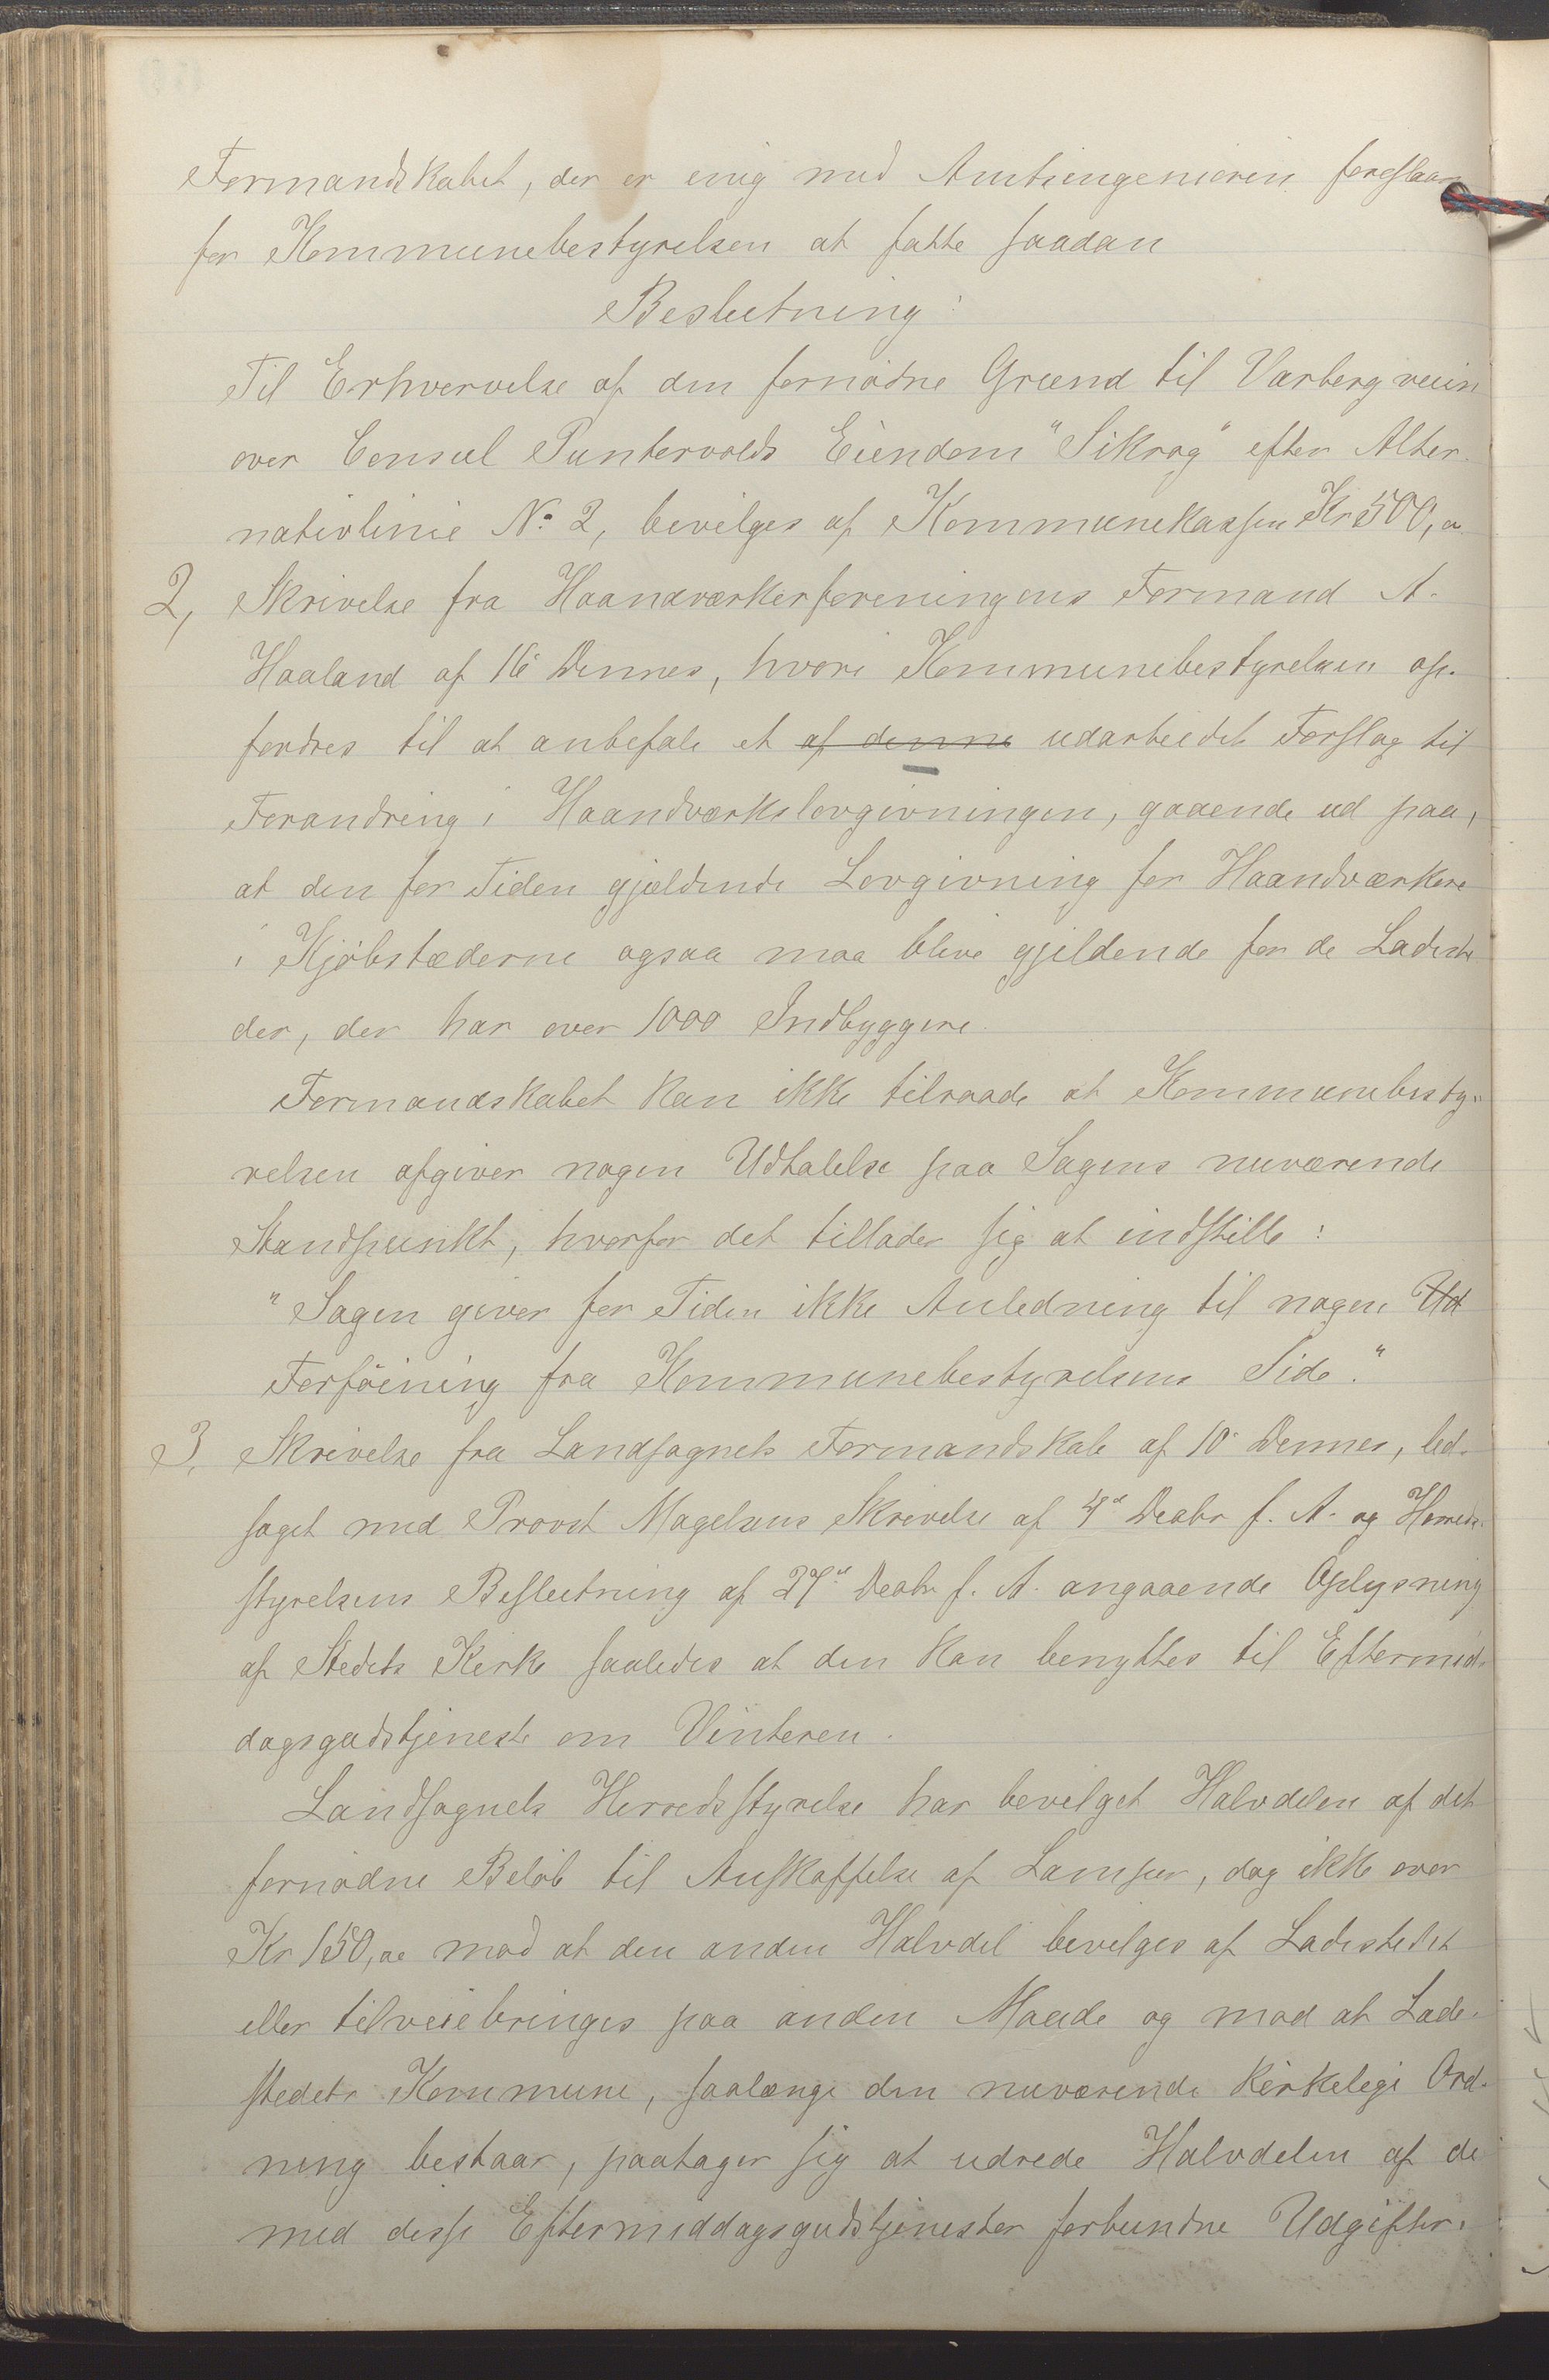 Formandskabet, der er enig med Amtsingeniøren foreslaar
for Kommunebestyrelsen at fatte saadan
Beslutning:
Til Erhvervelse af den fornødne Grund til Varbergveien
over Consul Puntervolds Eiendom "Sikrog" efter Alter-
nativlinie No 2, bevilges af Kommunekassen Kr 500,00
2, Skrivelse fra Haandværkerforeningens Formand A.
Haaland af 16 Dennes, hvori Kommunebestyrelsen op-
fordres til at anbefale et af denne udarbeidet Forslag til
Forandring i Haandværkslovgivningen, gaaende ud paa,
at den for Tiden gjældende Lovgivning for Haandværkere
i Kjøbstæderne ogsaa maa blive gjeldende for de Ladeste
der, der har over 1000 Indbyggere.
Formandskabet kan ikke tilraade at Kommunebesty-
relsen afgiver nogen Udtalelse paa Sagens nuværende
Standpunkt, hvorfor det tillader sig at indstille:
"Sagen giver for Tiden ikke Anledning til nogen Ud
Forføining fra Kommunebestyrelsens Side."
3. Skrivelse fra Landsognets Formandskab af 10de Dennes, led-
saget med Provst Magelsens Skrivelse af 4de Decbr f. A. og Herreds-
styrelsens Beslutning af 27de Decbr f. A. angaaende Oplysning
af Stedets Kirke saaledes at den kan benyttes til Eftermid-
dagsgudstjeneste om Vinteren.
Landsognets Herredsstyrelse har bevilget Halvdelen af det
fornødne Beløb til Anskaffelse af Lamper, dog ikke over
Kr 150,00 mod at den anden Halvdel bevilges af Ladestedet
eller tilveiebringes paa anden Maade og mod at Lade-
stedets Kommune, saalænge den nuværende kirkelige Ord-
ning bestaar, paatager sig at udrede Halvdelen af de
med disse Eftermiddagsgudstjenester forbundne Udgifter.